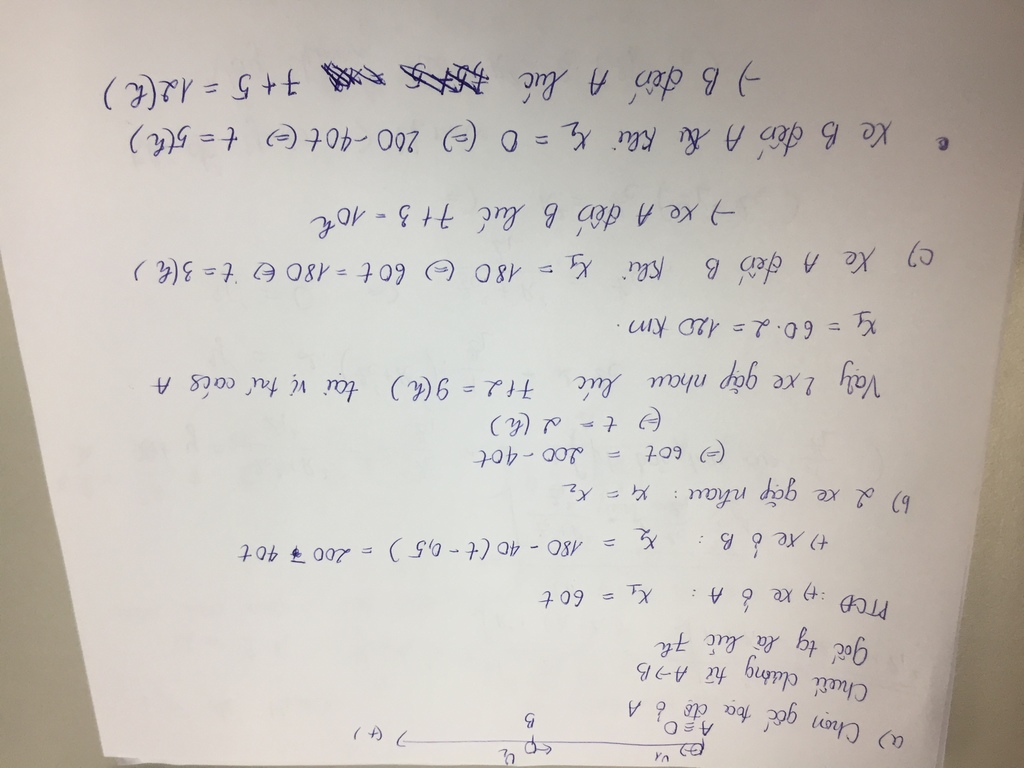 v1 v2
A ≡ O B (+)
a) Chọn gốc toạ độ ở A
Chiều dương từ A→B
Gốc tg là lúc 7h
PTCĐ : +) xe ở A : x1 = 60t
+) xe ở B : x2 = 180 - 40(t - 0,5) = 200 - 40t
b) 2 xe gặp nhau : x1 = x2
(=) 60t = 200 - 40t
(=) t = 2(h)
Vậy 2 xe gặp nhau lúc 7+2 = 9(h) tại vị trí cách A
x1 = 60.2 = 120 km.
c) Xe A đến B khi x1 = 180 (=) 60t = 180 (=) t = 3(h)
→ xe A đến B lúc 7+3 = 10h
Xe B đến A khi x2 = 0 (=) 200 - 40t (=) t = 5(h)
→ B đến A lúc 7+5 = 12(h)